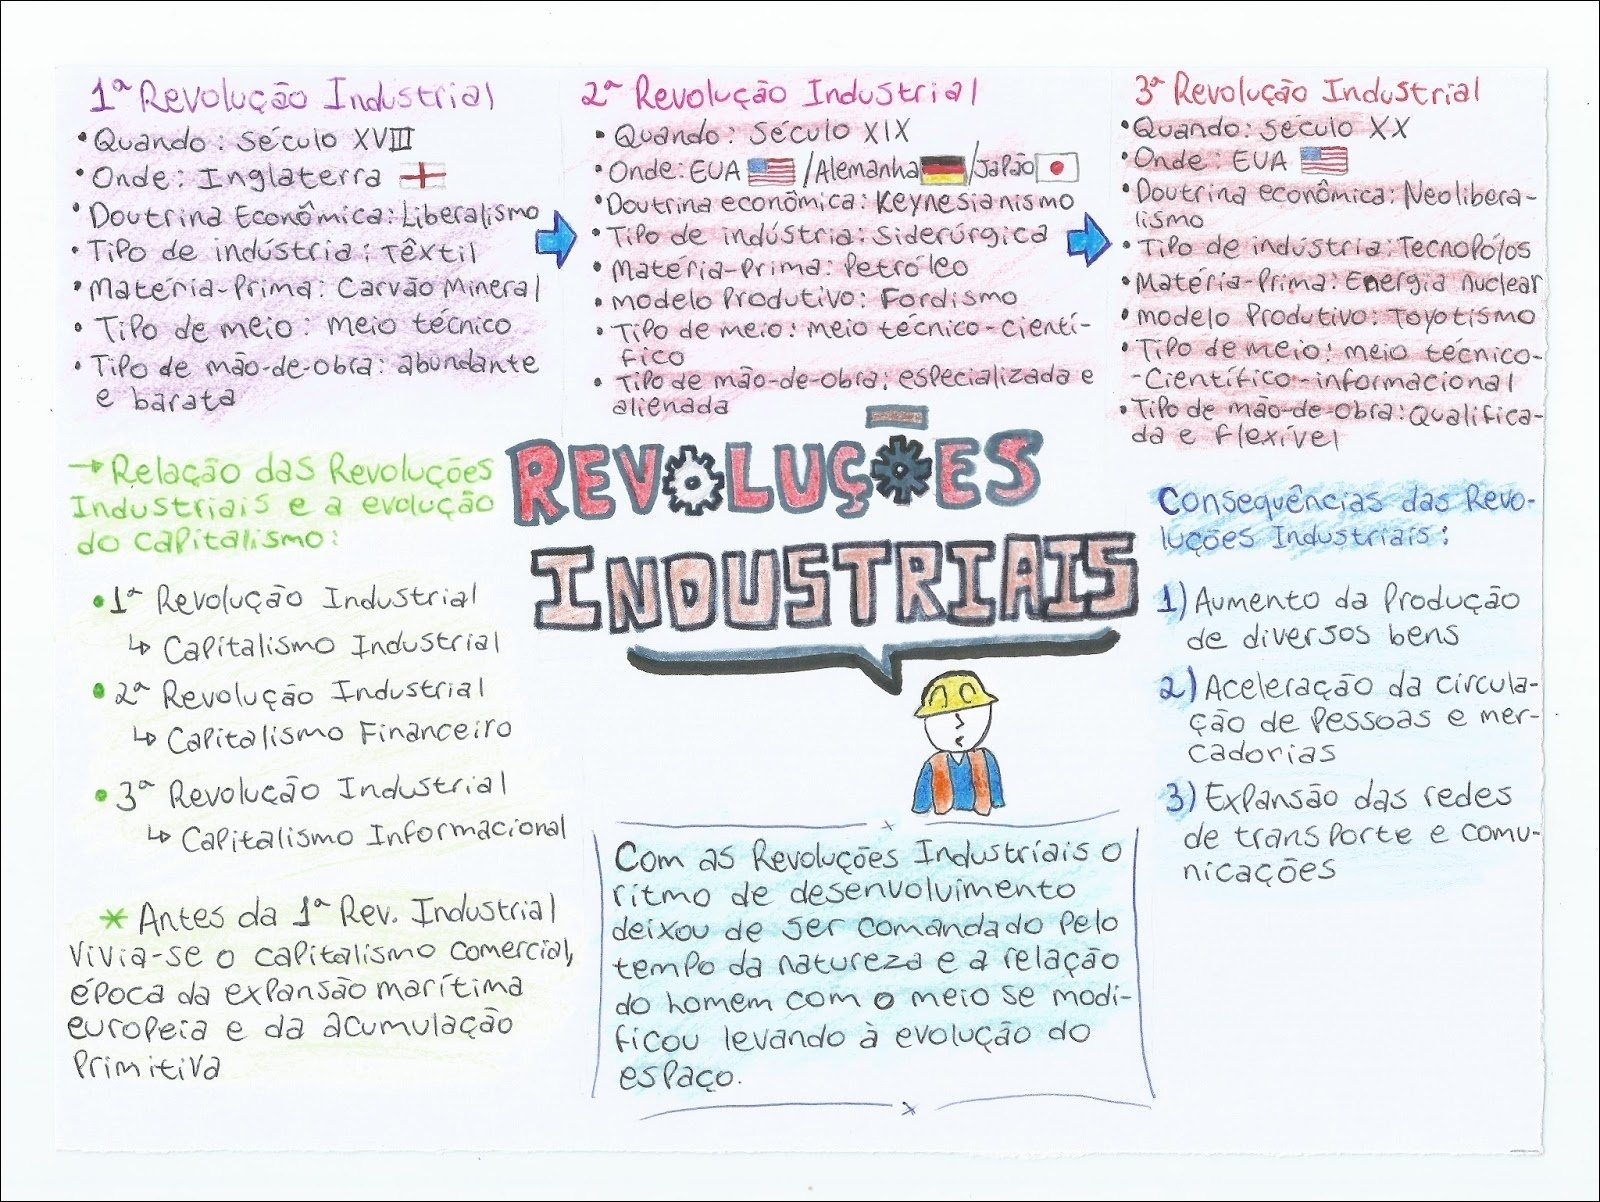 1ª Revolução Industrial
• Quando: Século XVIII
• Onde: Inglaterra
• Doutrina Econômica: Liberalismo
• Tipo de indústria: Têxtil
• Matéria-Prima: Carvão Mineral
• Tipo de meio: meio técnico
• Tipo de mão-de-obra: abundante
e barata
2ª Revolução Industrial
• Quando: Século XIX
• Onde: EUA /Alemanha /Japão
• Doutrina econômica: Keynesianismo
• Tipo de indústria: Siderúrgica
• Matéria-Prima: Petróleo
• modelo Produtivo: Fordismo
• Tipo de meio: meio técnico-cientí-
fico
• Tipo de mão-de-obra: especializada e
alienada
3ª Revolução Industrial
• Quando: Século XX
• Onde: EUA
• Doutrina econômica: Neolibera-
lismo
• Tipo de indústria: Tecnopólos
• Matéria-Prima: Energia Nuclear
• modelo Produtivo: Toyotismo
• Tipo de meio: meio técnico-
-Científico-informacional
• Tipo de mão-de-obra: Qualifica-
da e flexível
REVOLUÇÕES
INDUSTRIAIS
→ Relação das Revoluções
Industriais e a evolução
do capitalismo:
• 1ª Revolução Industrial
↳ Capitalismo Industrial
• 2ª Revolução Industrial
↳ Capitalismo Financeiro
• 3ª Revolução Industrial
↳ Capitalismo Informacional
* Antes da 1ª Rev. Industrial
vivia-se o capitalismo comercial,
época da expansão marítima
europeia e da acumulação
primitiva
Com as Revoluções Industriais o
ritmo de desenvolvimento
deixou de ser comandado pelo
tempo da natureza e a relação
do homem com o meio se modi-
ficou levando à evolução do
espaço.
Consequências das Revo-
luções Industriais:
1) Aumento da Produção
de diversos bens
2) Aceleração da circula-
ção de pessoas e mer-
cadorias
3) Expansão das redes
de transporte e comu-
nicações